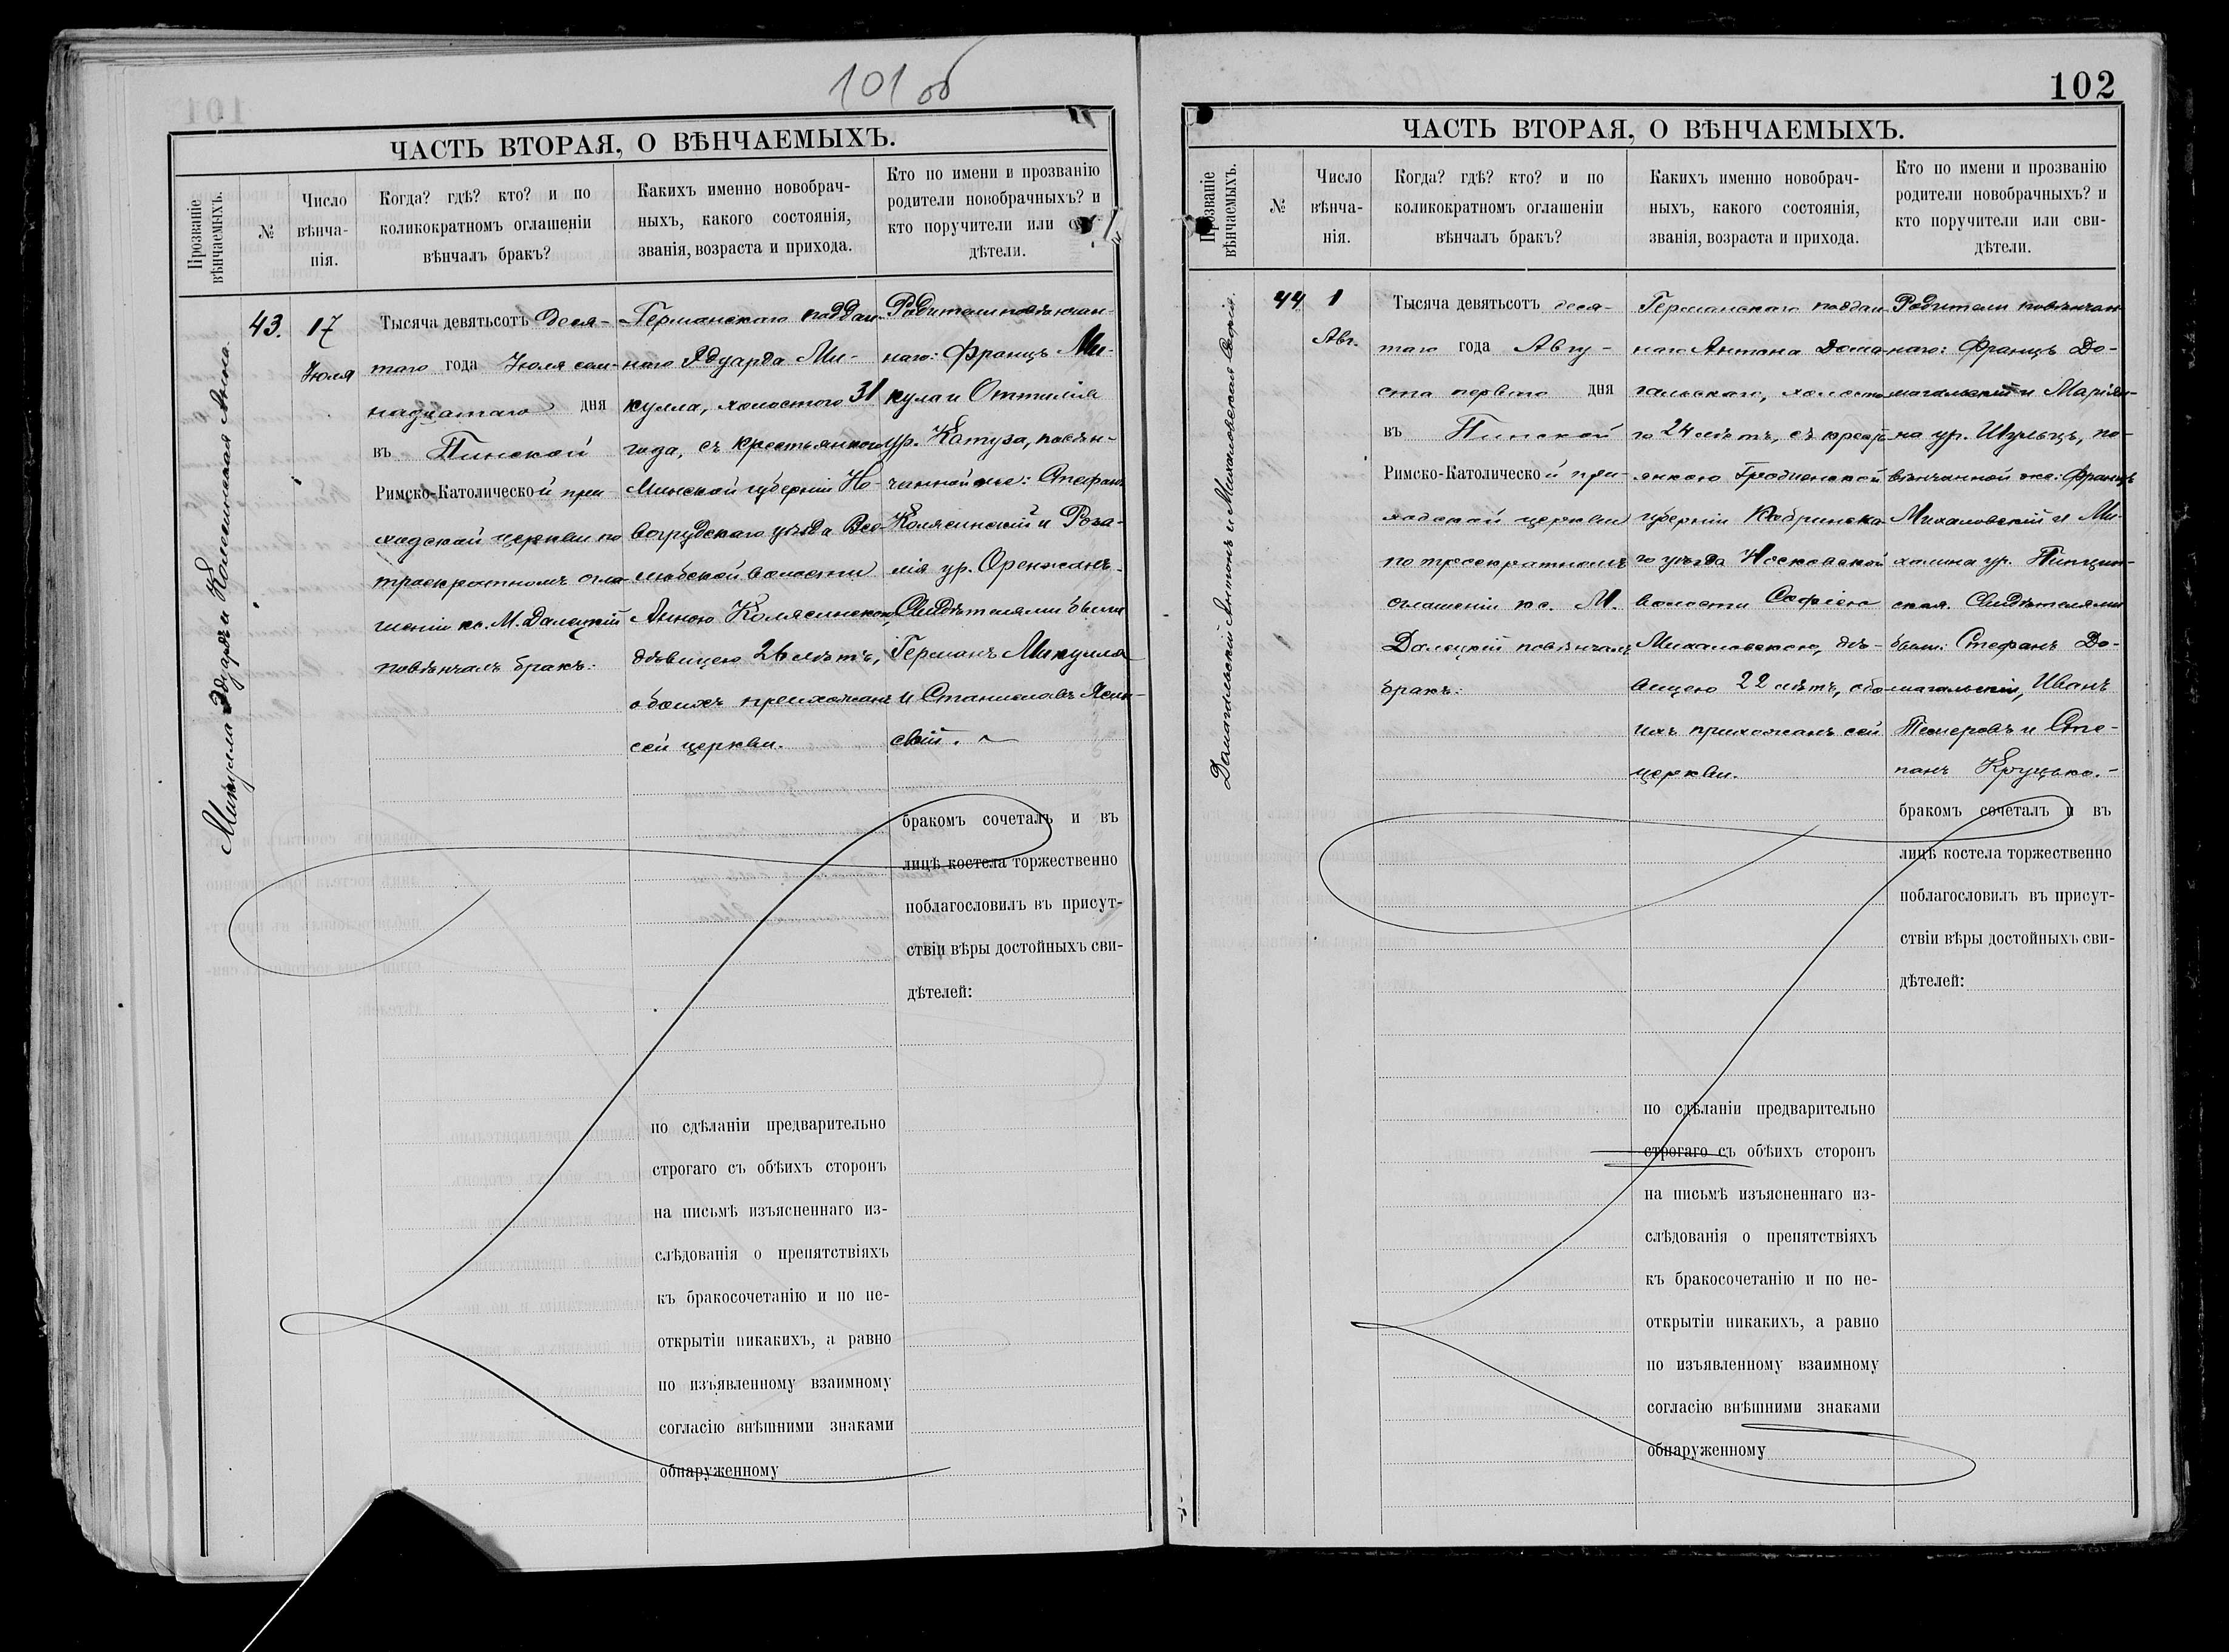 101 об
ЧАСТЬ ВТОРАЯ, О ВѢНЧАЕМЫХЪ.
Прозваніе
вѣнчаемыхъ.
№
Число
вѣнча-
нія.
Когда? гдѣ? кто? и по
коликократномъ оглашеніи
вѣнчалъ бракъ?
Какихъ именно новобрач-
ныхъ, какого состоянія,
званія, возраста и прихода.
Кто по имени и прозванію
родители новобрачныхъ? и
кто поручители или
дѣтели.
Микулла Эдуардъ и Колясинская Анна.
43.
17
Іюля
Тысяча девятьсотъ деся-
таго года Іюля сем-
надцатаго дня
въ Пинской
Римско-Католической при
ходской церкви по
троекратномъ огла-
шеніи кс. М. Далецкій
повѣнчалъ бракъ.
Германскаго поддан-
наго Эдуарда Ми-
кулла, холостого 31
года, съ крестьянкою
Минской губерніи Но-
вогрудскаго уѣзда Все-
любской волости
Анною Колясинскою,
дѣвицею 26 лѣтъ,
обоихъ прихожанъ
сей церкви.
Родители повѣнчан-
наго: Францъ Ми-
кула и Оттилія
ур. Катуза, повѣн-
чанной же: Стефанъ
Колясинскій и Роза-
лія ур. Оренжакъ.
Свидѣтелями были
Германъ Микулла
и Станиславъ Ясин-
скій.
бракомъ сочеталъ и въ
лицѣ костела торжественно
поблагословилъ въ присут-
ствіи вѣры достойныхъ сви-
дѣтелей:
по сдѣланіи предварительно
строгаго съ обѣихъ сторонъ
на письмѣ изъясненнаго из-
слѣдованія о препятствіяхъ
къ бракосочетанію и по не-
открытіи никакихъ, а равно
по изъявленному взаимному
согласію внѣшними знаками
обнаруженному
102
ЧАСТЬ ВТОРАЯ, О ВѢНЧАЕМЫХЪ.
Прозваніе
вѣнчаемыхъ.
№
Число
вѣнча-
нія.
Когда? гдѣ? кто? и по
коликократномъ оглашеніи
вѣнчалъ бракъ?
Какихъ именно новобрач-
ныхъ, какого состоянія,
званія, возраста и прихода.
Кто по имени и прозванію
родители новобрачныхъ? и
кто поручители или сви-
дѣтели.
Домагальскій Антонъ и Михаловская Софія.
44
1
Авг.
Тысяча девятьсотъ деся-
таго года Авгу-
ста перваго дня
въ Пинской
Римско-Католической при-
ходской церкви
по троекратномъ
оглашеніи кс. М.
Далецкій повѣнчалъ
бракъ.
Германскаго поддан-
наго Антона Дома-
гальскаго, холосто-
го 24 лѣтъ, съ крестья-
янкою Гродненской
губерніи Кобринска-
го уѣзда Носковской
волости Софіею
Михаловскою, дѣ-
вицею 22 лѣтъ, обо-
ихъ прихожанъ сей
церкви.
Родители повѣнчан-
наго: Францъ До-
магальскій и Маріан-
на ур. Шульцъ, по-
вѣнчанной же: Францъ
Михаловскій и Ми-
халина ур. Пинчин-
ская. Свидѣтелями
были: Стефанъ До-
магальскій, Иванъ
и Сте-
панъ Круцько.
бракомъ сочеталъ и въ
лицѣ костела торжественно
поблагословилъ въ присут-
ствіи вѣры достойныхъ сви-
дѣтелей:
по сдѣланіи предварительно
строгаго съ обѣихъ сторонъ
на письмѣ изъясненнаго из-
слѣдованія о препятствіяхъ
къ бракосочетанію и по не-
открытіи никакихъ, а равно
по изъявленному взаимному
согласію внѣшними знаками
обнаруженному